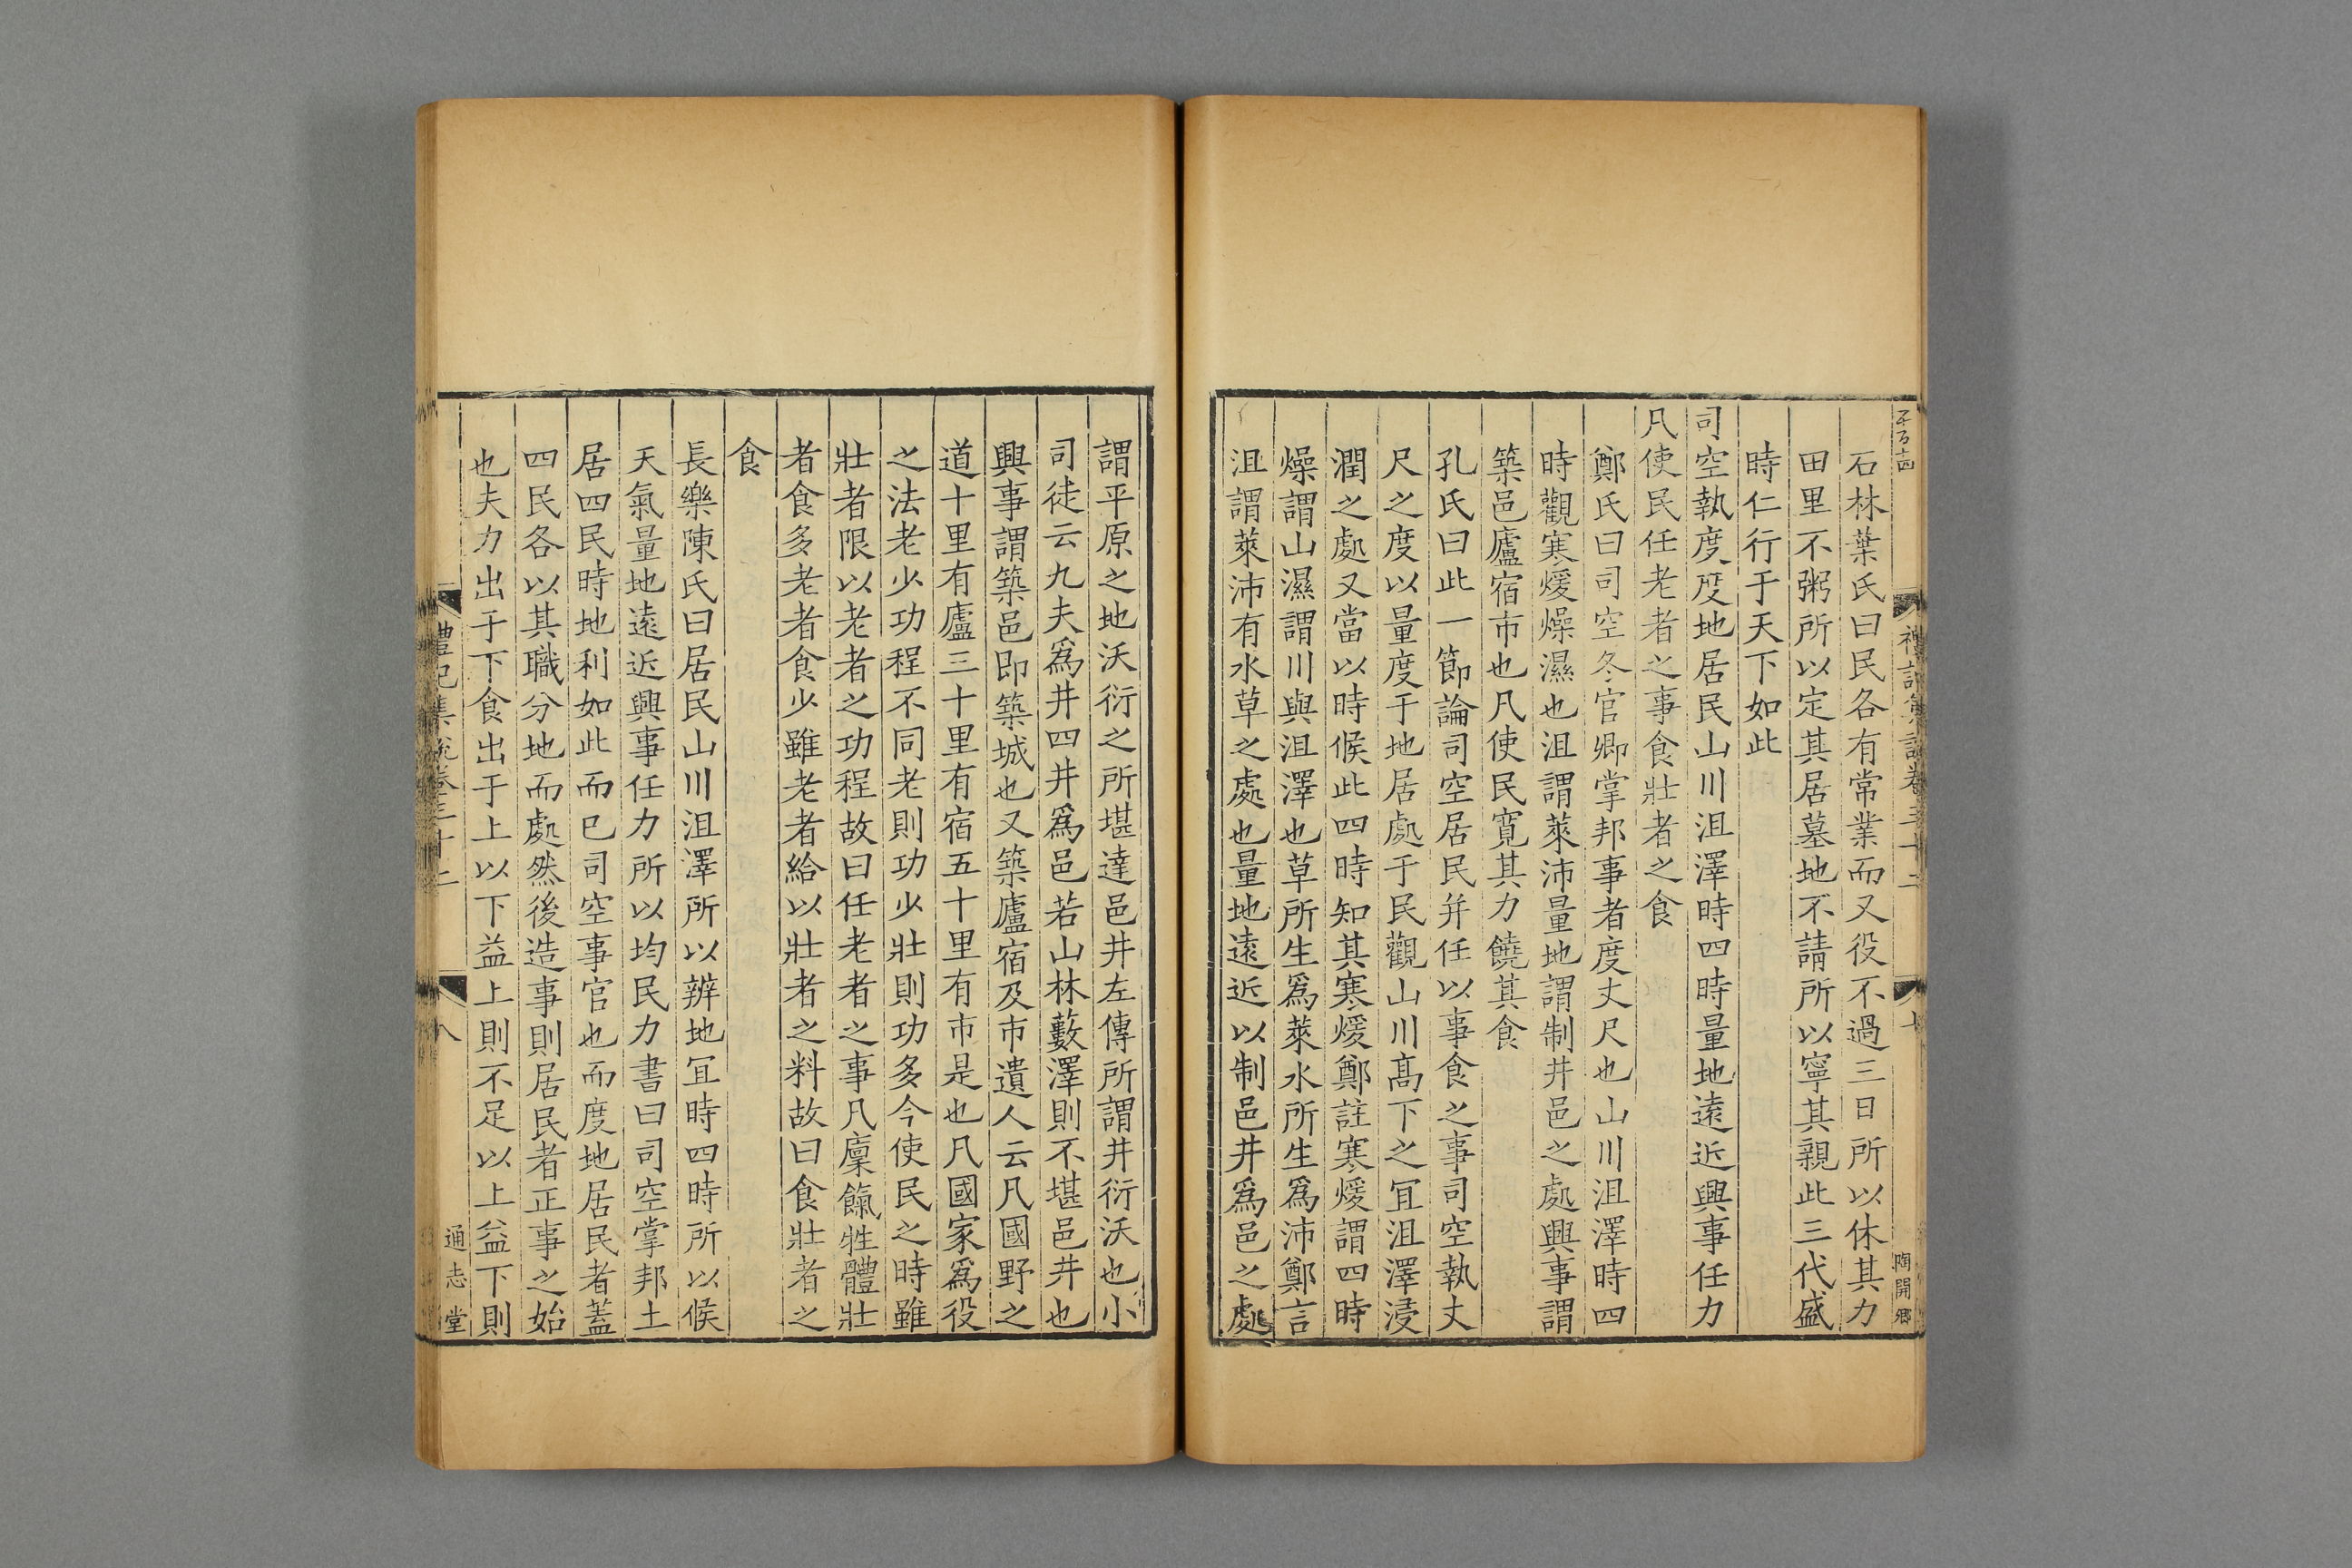 石林葉氏曰民各有常業而又役不過三日所以休其力
田里不粥所以定其居墓地不請所以寧其親此三代盛
時仁行于天下如此
司空執度度地居民山川沮澤時四時量地遠近興事任力
凡使民任老者之事食壯者之食
鄭氏曰司空冬官卿掌邦事者度丈尺也山川沮澤時四
時觀寒煖燥濕也沮謂萊沛量地謂制井邑之處興事謂
築邑廬宿市也凡使民寬其力饒其食
孔氏曰此一節論司空居民并任以事食之事司空執丈
尺之度以量度于地居處于民觀山川高下之宜沮澤浸
潤之處又當以時候此四時知其寒煖鄭註寒煖謂四時
燥謂山濕謂川與沮澤也草所生爲萊水所生爲沛鄭言
沮謂萊沛有水草之處也量地遠近以制邑井爲邑之處
謂平原之地沃衍之所堪達邑井左傳所謂井衍沃也小
司徒云九夫爲井四井爲邑若山林藪澤則不堪邑井也
興事謂築邑即築城也又築廬宿及市遺人云凡國野之
道十里有廬三十里有宿五十里有市是也凡國家爲役
之法老少功程不同老則功少壯則功多今使民之時雖
壯者限以老者之功程故曰任老者之事凡廩餼牲體壯
者食多老者食少雖老者給以壯者之料故曰食壯者之
食
長樂陳氏曰居民山川沮澤所以辨地宜時四時所以候
天氣量地遠近興事任力所以均民力書曰司空掌邦土
居四民時地利如此而已司空事官也而度地居民者蓋
四民各以其職分地而處然後造事則居民者正事之始
也夫力出于下食出于上以下益上則不足以上益下則
禮記集說卷三十二
八
通志堂